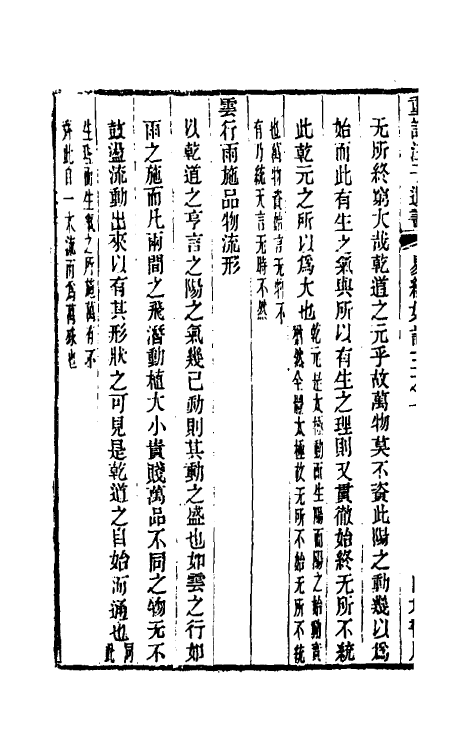 无所終窮大哉乾道之元乎故萬物莫不資此陽之動幾以爲
始而此有生之氣與所以有生之理則又貫徹始終无所不統
此乾元之所以爲大也乾元是太極動而生陽而陽之始動實
猶然全體太極故无所不始无所不統
也萬物資始言无物不
有乃統天言无時不然
雲行雨施品物流形
以乾道之亨言之陽之氣幾已動則其動之盛也如雲之行如
雨之施而凡兩間之飛潛動植大小貴賤萬品不同之物无不
鼓盪流動出來以有其形狀之可見是乾道之自始而通也同
此
生
生氣之所施萬有不
齊此自一本流而爲萬殊也